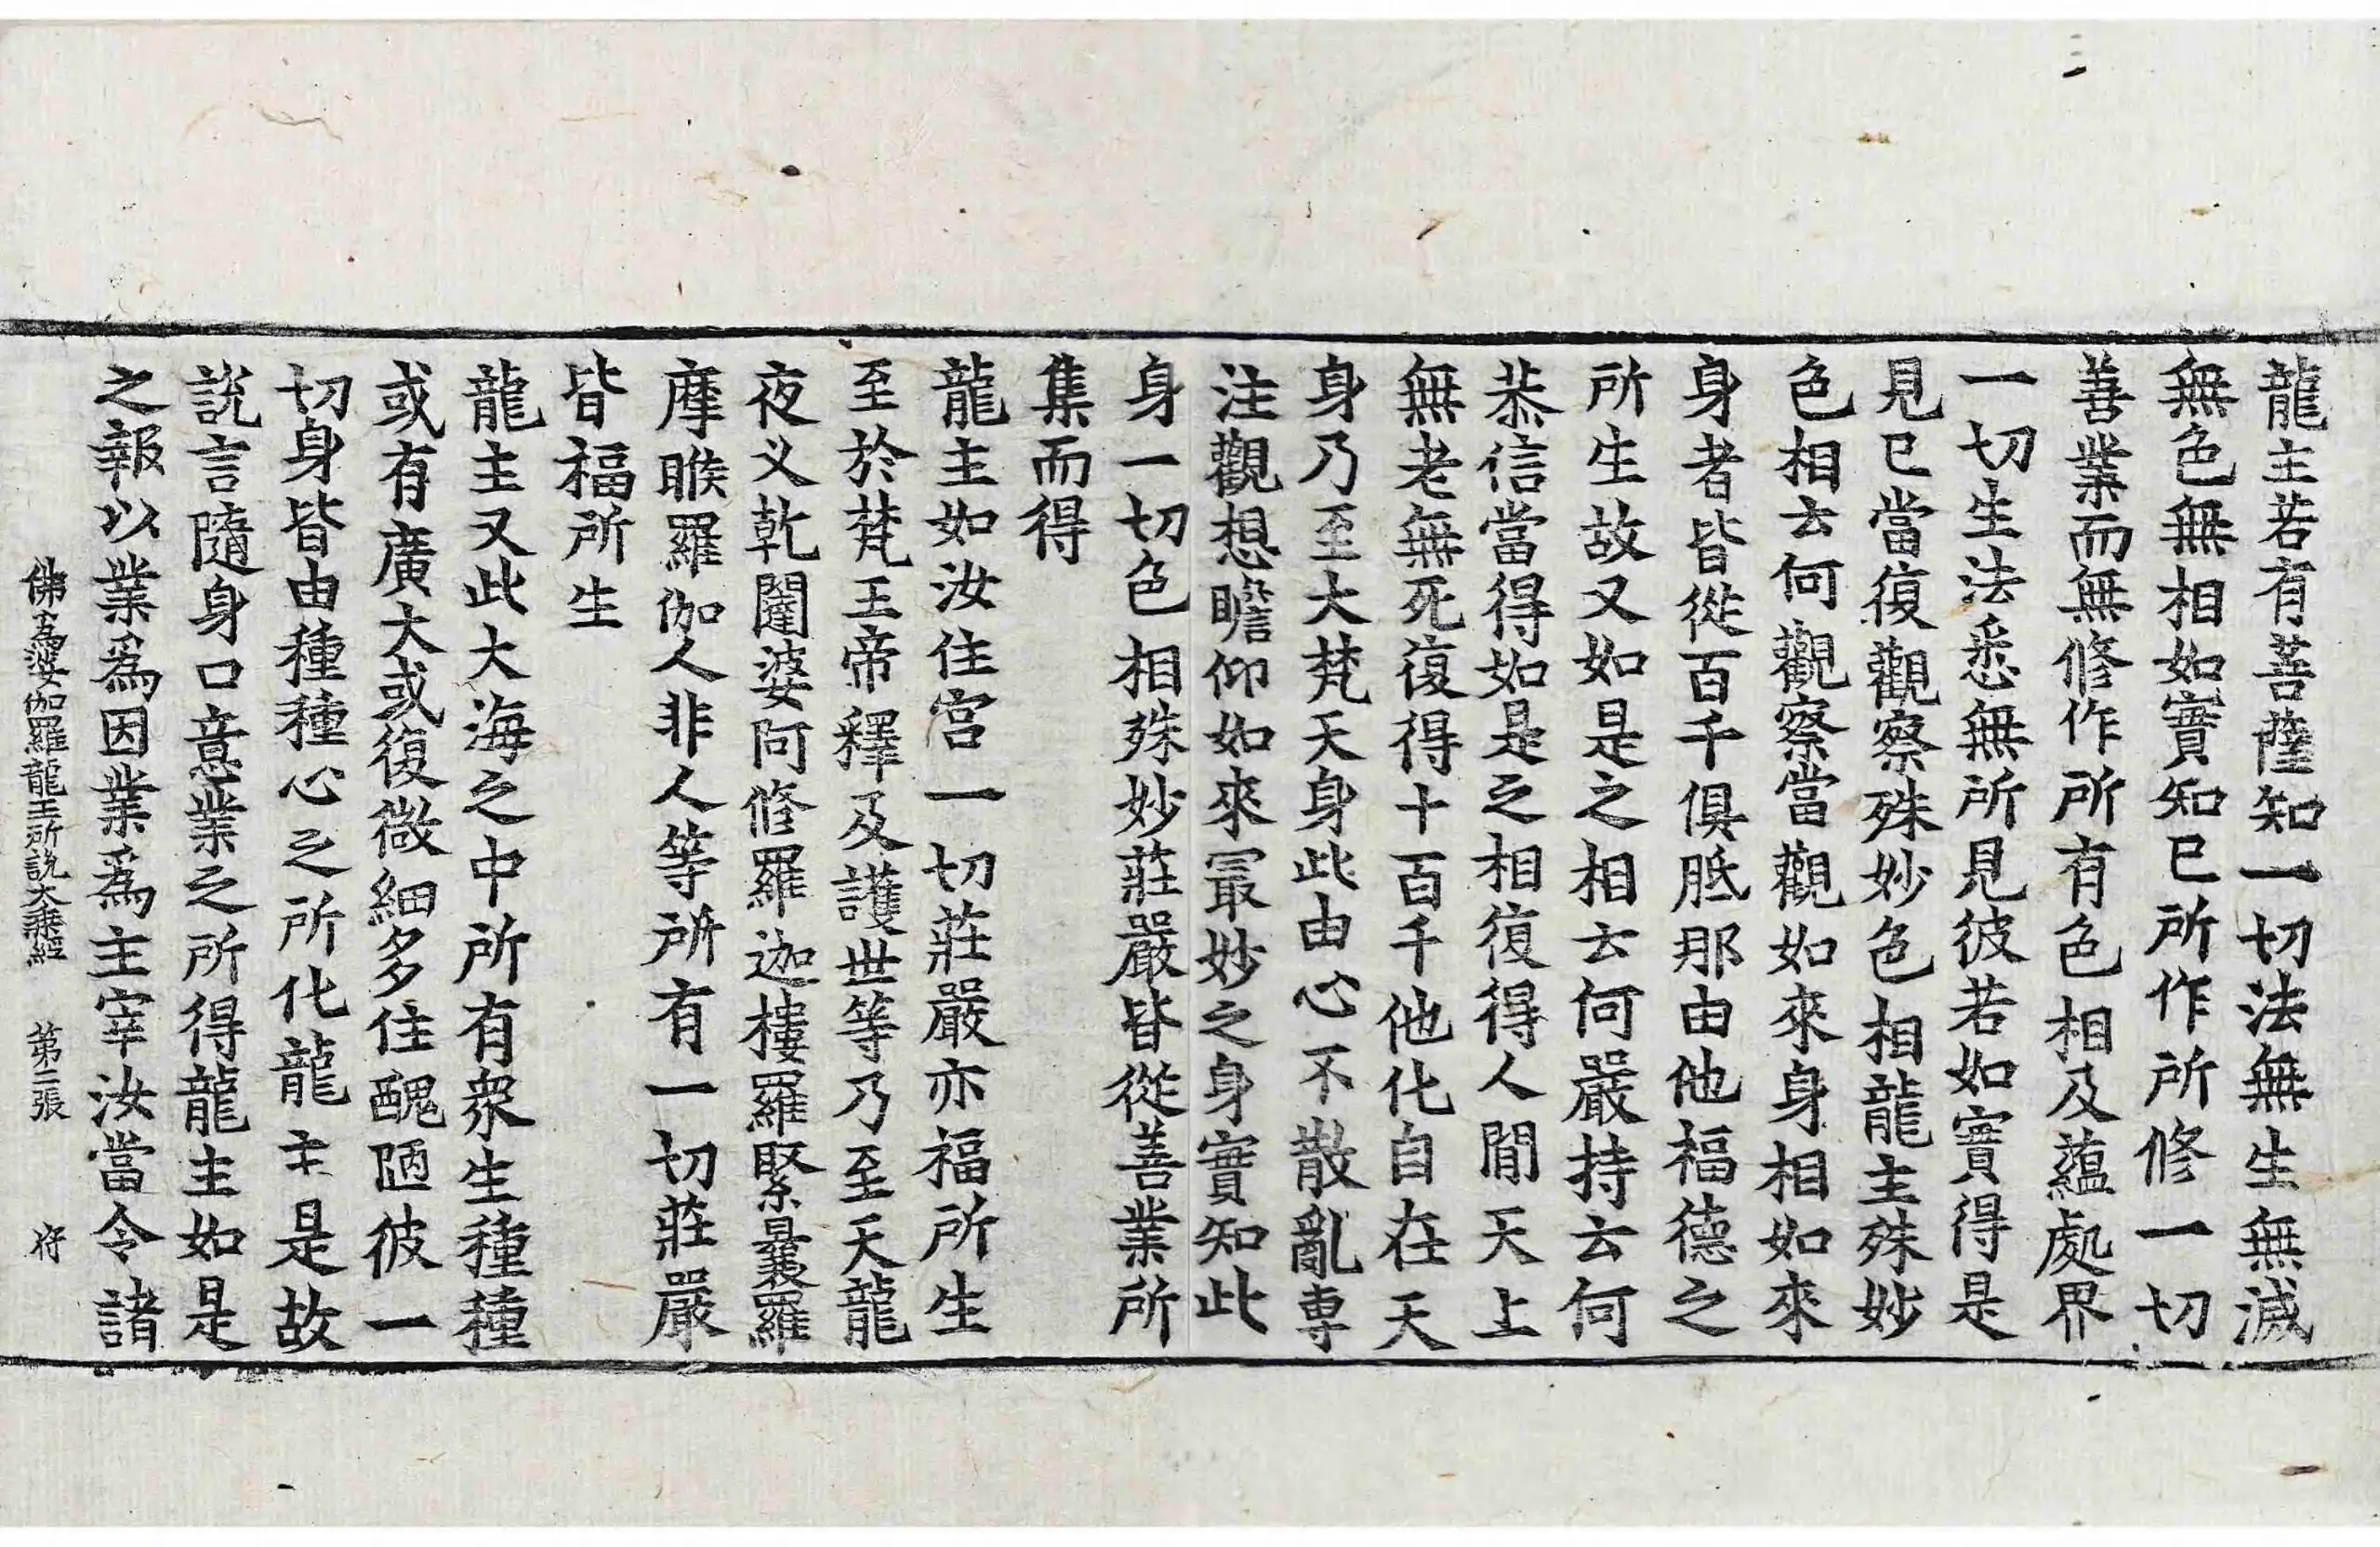 龍主若有菩薩知一切法無生無滅
無色無相如實知已所作所修一切
善業而無修作所有色相及蘊處界
一切生法悉無所見彼若如實得是
見已當復觀察殊妙色相龍主殊妙
色相云何觀察當觀如來身相如來
身者皆從百千俱胝那由他福德之
所生故又如是之相云何嚴持云何
恭信當得如是之相復得人間天上
無老無死復得十百千他化自在天
身乃至大梵天身此由心不散亂專
注觀想瞻仰如來冣妙之身實知此
身一切色相殊妙莊嚴皆從善業所
集而得
龍主如汝住宮一切莊嚴亦福所生
至於梵王帝釋及護世等乃至天龍
夜叉乾闥婆阿修羅迦樓羅緊曩羅
摩睺羅伽人非人等所有一切莊嚴
皆福所生
龍主又此大海之中所有衆生種種
或有廣大或復微細多住醜陋彼一
切身皆由種種心之所化龍主是故
說言隨身口意業之所得龍主如是
之報以業爲因業爲主宰汝當令諸
佛爲娑伽羅龍王所說大乘經 第二張